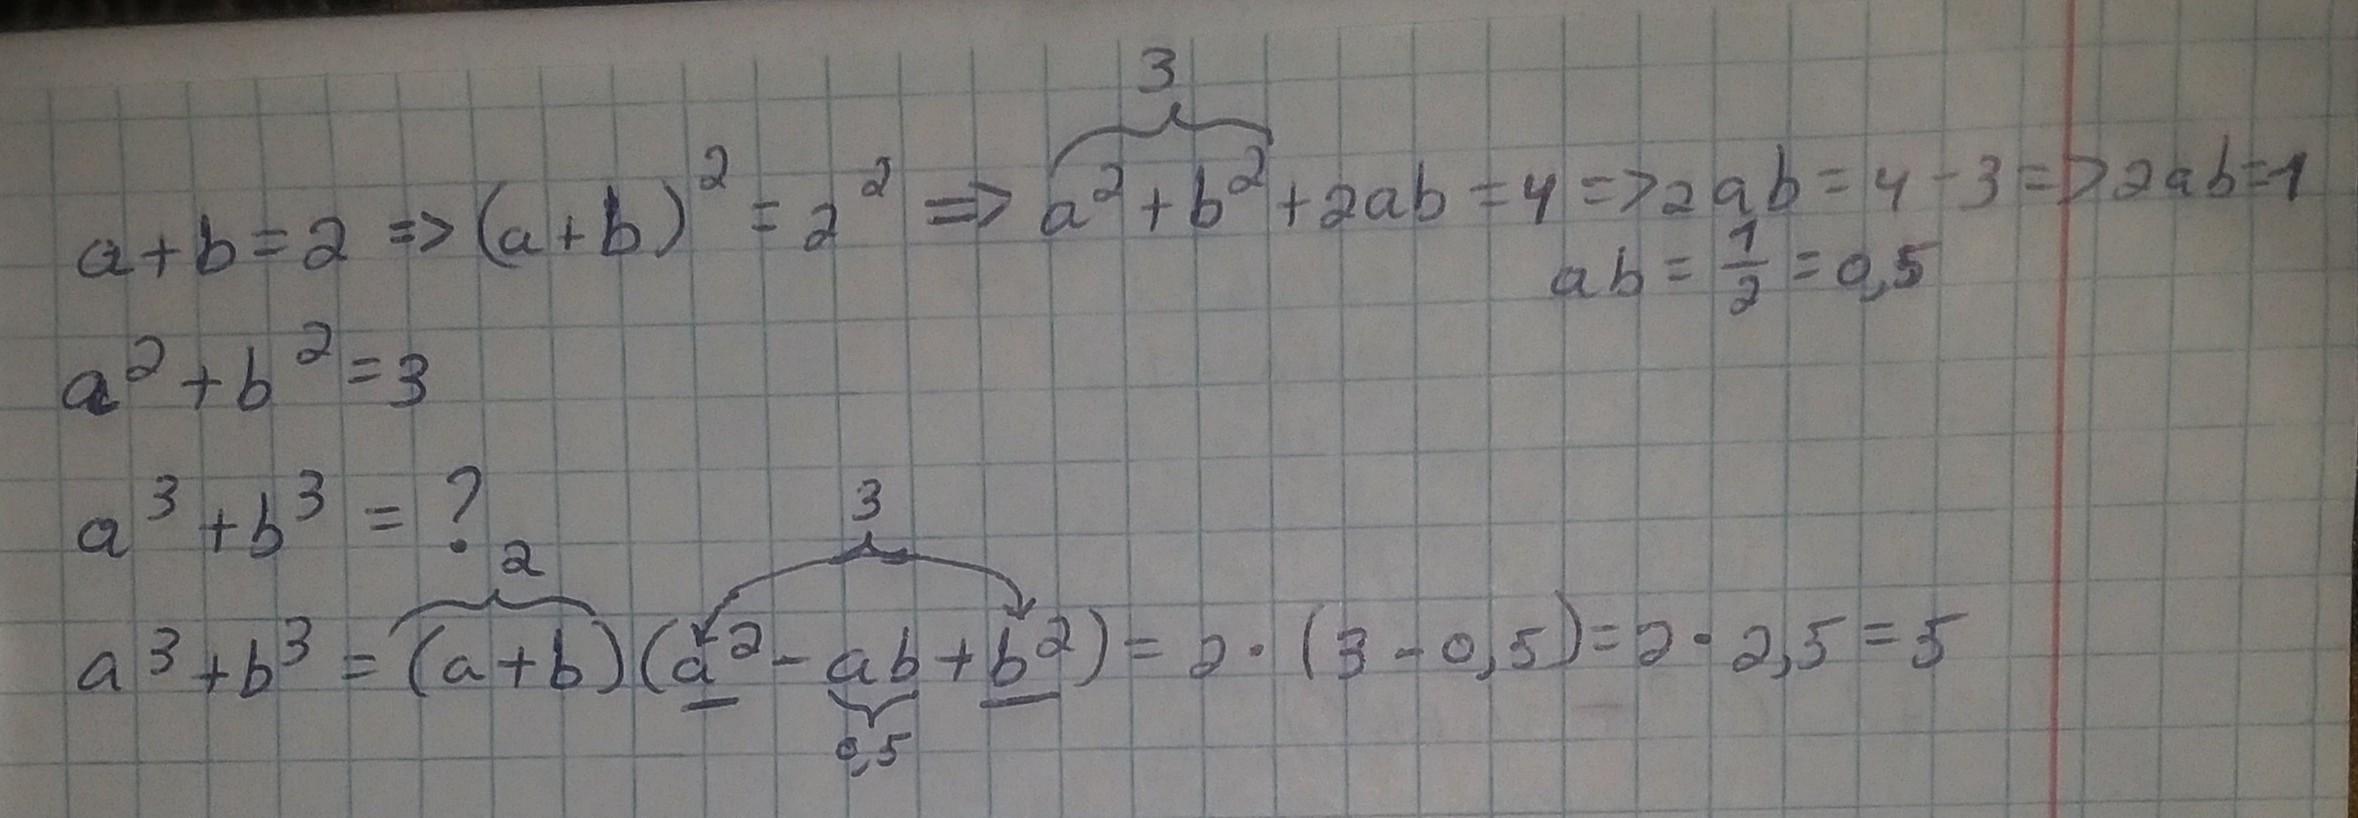 3
a+b=2 => (a+b)² = 2² => a²+b²+2ab = 4 => 2ab = 4 - 3 => 2ab=1
ab = 1/2 = 0,5
a²+b²=3
a³+b³ = ?
2 3
a³+b³ = (a+b)(a²-ab+b²) = 2·(3-0,5)=2·2,5=5
0,5